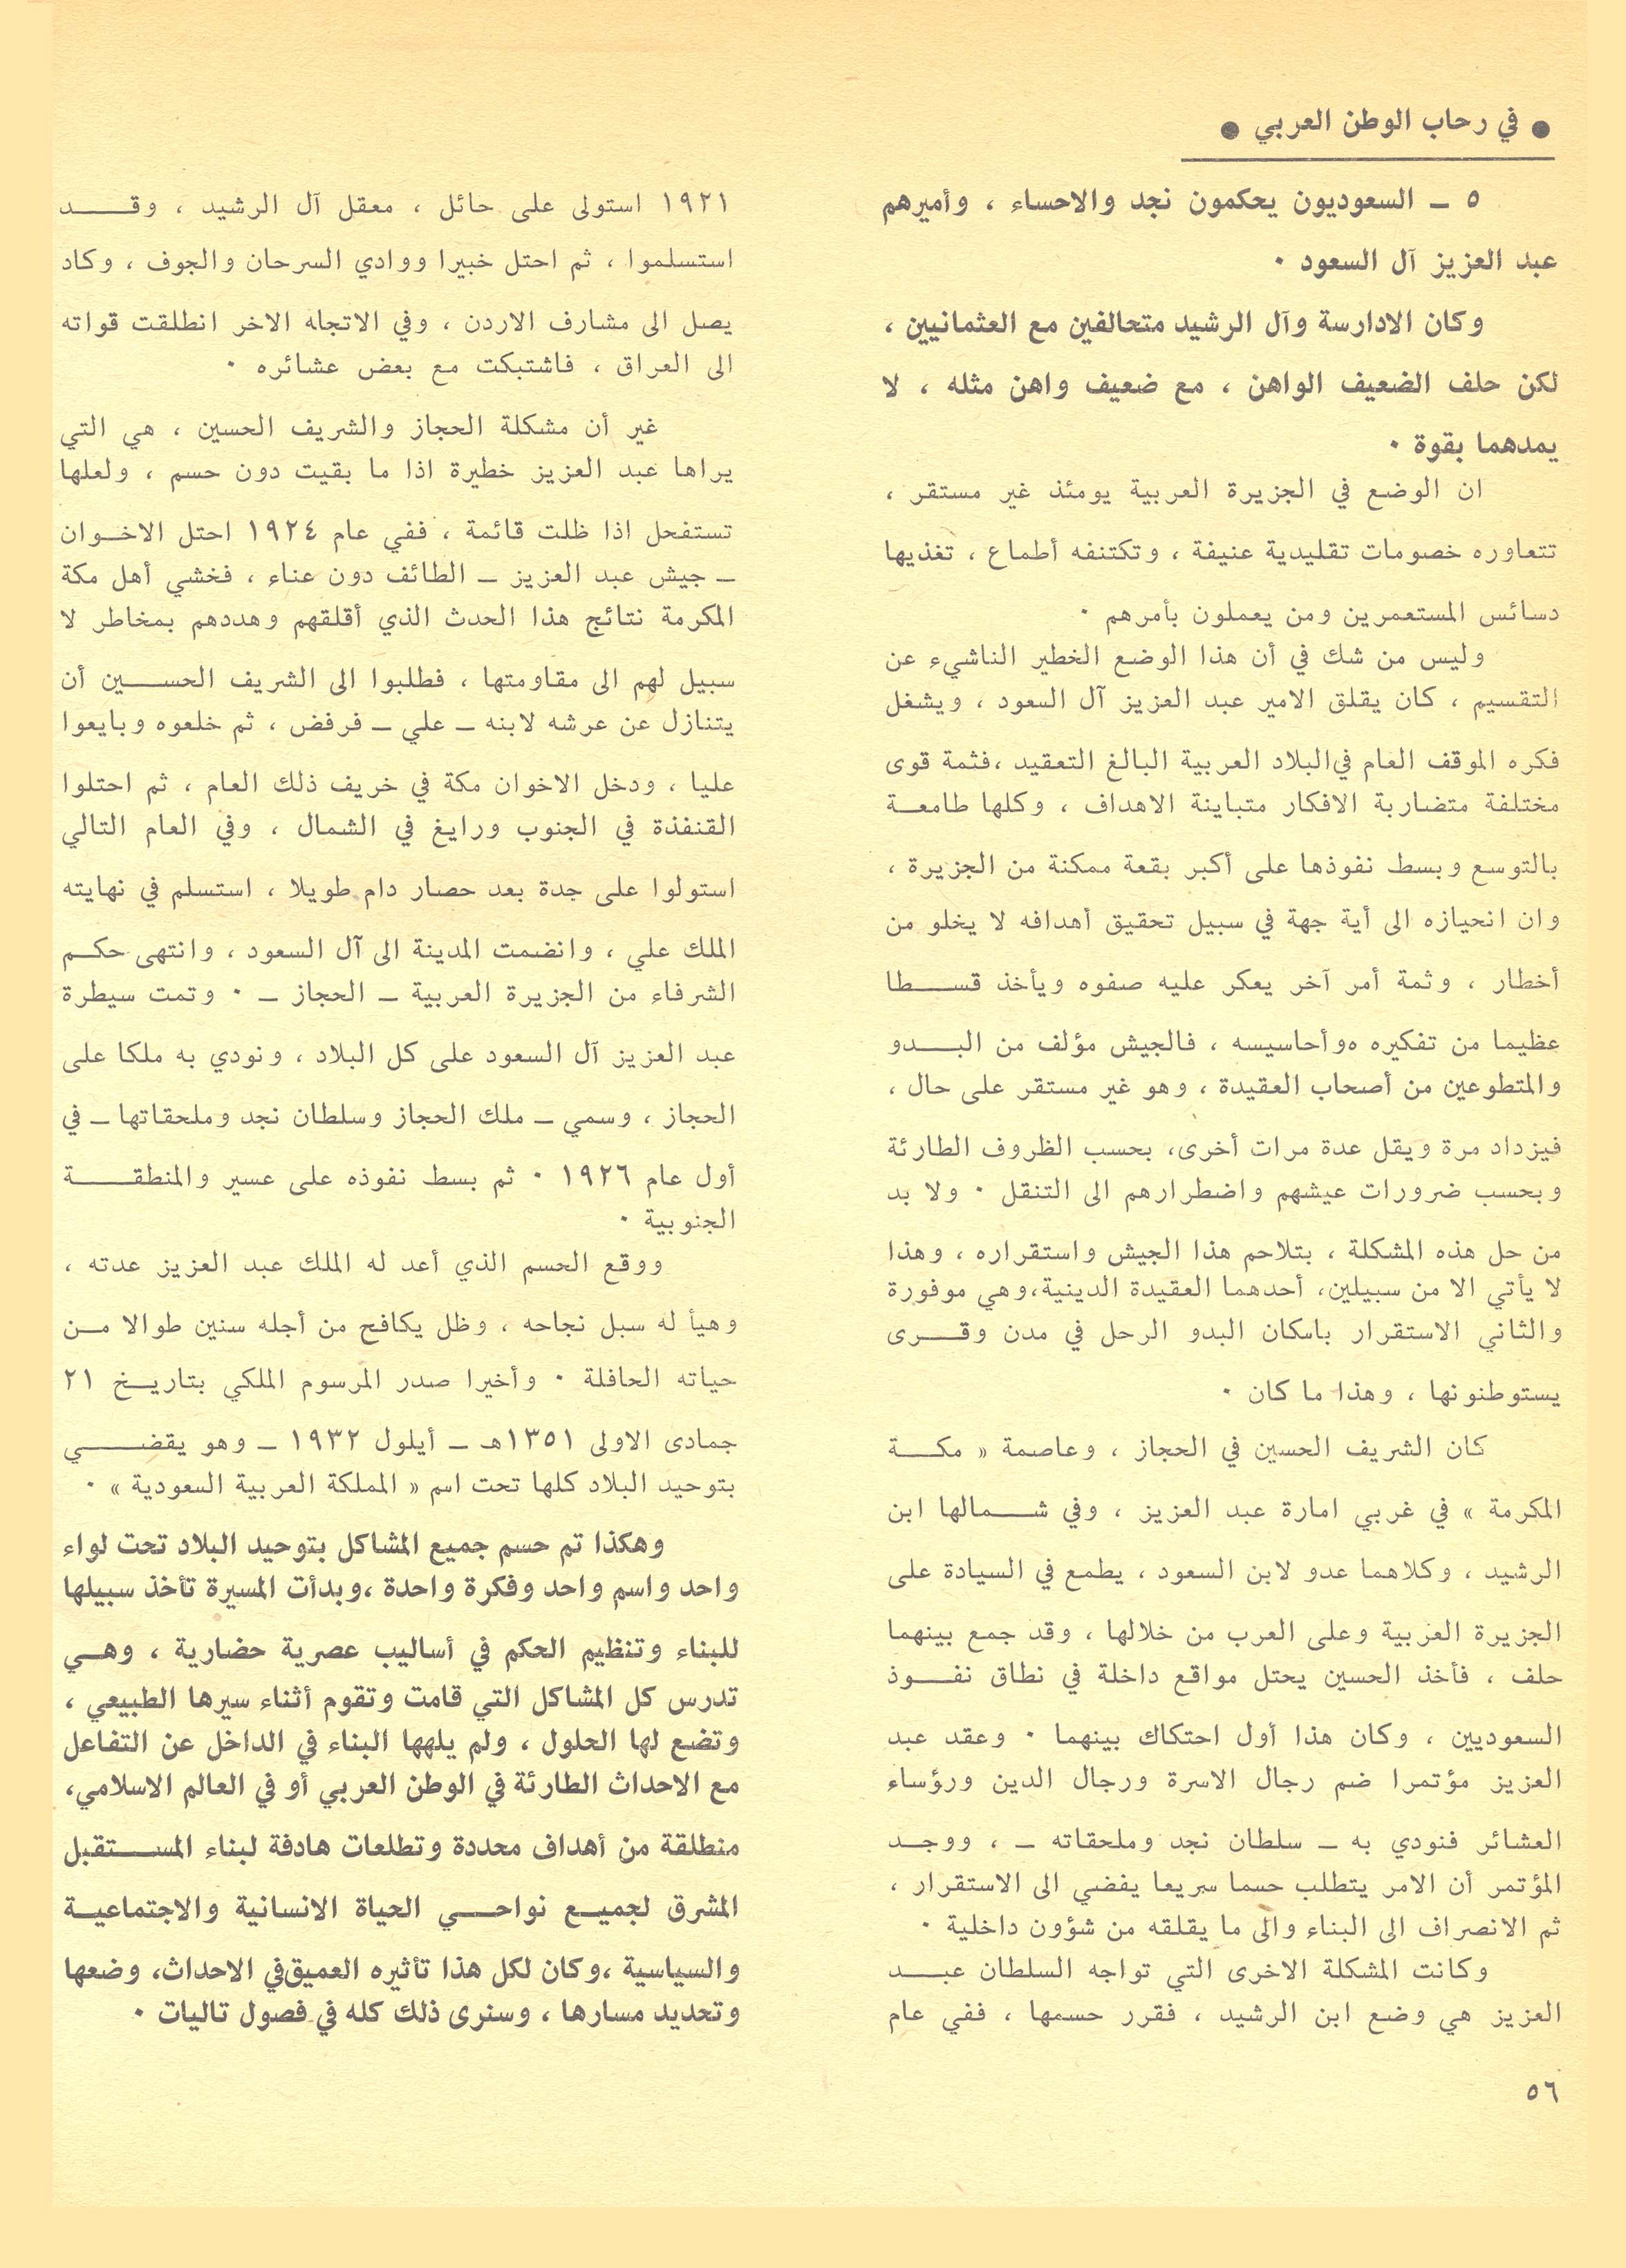 ● في رحاب الوطن العربي ●
٥ ـ السعوديون يحكمون نجد والاحساء ، وأميرهم
عبد العزيز آل السعود ٠
وكان الادارسة وآل الرشيد متحالفين مع العثمانيين ،
لكن حلف الضعيف الواهن ، مع ضعيف واهن مثله ، لا
يمدهما بقوة ٠
ان الوضع في الجزيرة العربية يومئذ غير مستقر ،
تتعاوره خصومات تقليدية عنيفة ، وتكتنفه أطماع ، تغذيها
دسائس المستعمرين ومن يعملون بأمرهم ٠
وليس من شك في أن هذا الوضع الخطير الناشيء عن
التقسيم ، كان يقلق الامير عبد العزيز آل السعود ، ويشغل
فكره الموقف العام في البلاد العربية البالغ التعقيد ،فثمة قوى
مختلفة متضاربة الافكار متباينة الاهداف ، وكلها طامعـة
بالتوسع وبسط نفوذها على أكبر بقعة ممكنة من الجزيرة ،
وان انحيازه الى أية جهة في سبيل تحقيق أهدافه لا يخلو من
أخطار ، وثمة أمر آخر يعكر عليه صفوه ويأخذ قســطا
عظيما من تفكيره هوأحاسيسه ، فالجيش مؤلف من البــدو
والمتطوعين من أصحاب العقيدة ، وهو غير مستقر على حال ،
فيزداد مرة ويقل عدة مرات أخرى، بحسب الظروف الطارئة
وبحسب ضرورات عيشهم واضطرارهم الى التنقل ٠ ولا بد
من حل هذه المشكلة ، بتلاحم هذا الجيش واستقراره ، وهذا
لا يأتي الا من سبيلين، أحدهما العقيدة الدينية،وهي موفورة
والثاني الاستقرار باسكان البدو الرحل في مدن وقــرى
يستوطنونها ، وهذا ما كان ٠
كان الشريف الحسين في الحجاز ، وعاصمة « مكــة
المكرمة » في غربي امارة عبد العزيز ، وفي شــمالها ابن
الرشيد ، وكلاهما عدو لابن السعود ، يطمع في السيادة على
الجزيرة العربية وعلى العرب من خلالها ، وقد جمع بينهما
حلف ، فأخذ الحسين يحتل مواقع داخلة في نطاق نفــوذ
السعوديين ، وكان هذا أول احتكاك بينهما ٠ وعقد عبد
العزيز مؤتمرا ضم رجال الاسرة ورجال الدين ورؤساء
العشائر فنودي به ـ سلطان نجد وملحقاته ـ ، ووجــد
المؤتمر أن الامر يتطلب حسما سريعا يفضي الى الاستقرار ،
ثم الانصراف الى البناء والى ما يقلقه من شؤون داخلية ٠
وكانت المشكلة الاخرى التي تواجه السلطان عبــد
العزيز هي وضع ابن الرشيد ، فقرر حسمها ، ففي عام
١٩٢١ استولى على حائل ، معقل آل الرشيد ، وقــد
استسلموا ، ثم احتل خبيرا ووادي السرحان والجوف ، وكاد
يصل الى مشارف الاردن ، وفي الاتجاه الاخر انطلقت قواته
الى العراق ، فاشتبكت مع بعض عشائره ٠
غير أن مشكلة الحجاز والشريف الحسين ، هي التي
يراها عبد العزيز خطيرة اذا ما بقيت دون حسم ، ولعلها
تستفحل اذا ظلت قائمة ، ففي عام ١٩٢٤ احتل الاخـوان
ـ جيش عبد العزيز ـ الطائف دون عناء ، فخشي أهل مكة
المكرمة نتائج هذا الحدث الذي أقلقهم وهددهم بمخاطر لا
سبيل لهم الى مقاومتها ، فطلبوا الى الشريف الحســين أن
يتنازل عن عرشه لابنه ـ علي ـ فرفض ، ثم خلعوه وبايعوا
عليا ، ودخل الاخوان مكة في خريف ذلك العام ، ثم احتلوا
القنفذة في الجنوب ورابغ في الشمال ، وفي العام التالي
استولوا على جدة بعد حصار دام طويلا ، استسلم في نهايته
الملك علي ، وانضمت المدينة الى آل السعود ، وانتهى حكـم
الشرفاء من الجزيرة العربية ـ الحجاز ـ ٠ وتمت سيطرة
عبد العزيز آل السعود على كل البلاد ، ونودي به ملكا على
الحجاز ، وسمي ـ ملك الحجاز وسلطان نجد وملحقاتها ـ في
أول عام ١٩٢٦ ٠ ثم بسط نفوذه على عسير والمنطقــة
الجنوبية ٠
ووقع الحسم الذي أعد له الملك عبد العزيز عدته ،
وهيأ له سبل نجاحه ، وظل يكافح من أجله سنين طوالا مـن
حياته الحافلة ٠ وأخيرا صدر المرسوم الملكي بتاريـخ ٢١
جمادى الاولى ١٣٥١هـ ـ أيلول ١٩٣٢ ـ وهو يقضــي
بتوحيد البلاد كلها تحت اسم « المملكة العربية السعودية » ٠
وهكذا تم حسم جميع المشاكل بتوحيد البلاد تحت لواء
واحد واسم واحد وفكرة واحدة ،وبدأت المسيرة تأخذ سبيلها
للبناء وتنظيم الحكم في أساليب عصرية حضارية ، وهـي
تدرس كل المشاكل التي قامت وتقوم أثناء سيرها الطبيعي ،
وتضع لها الحلول ، ولم يلهها البناء في الداخل عن التفاعل
مع الاحداث الطارئة في الوطن العربي أو في العالم الاسلامي،
منطلقة من أهداف محددة وتطلعات هادفة لبناء المســتقبل
المشرق لجميـع نواحـي الحياة الانسانية والاجتماعيـة
والسياسية ،وكان لكل هذا تأثيره العميق في الاحداث، وضعها
وتحديد مسارها ، وسنرى ذلك كله في فصول تاليات ٠
٥٦